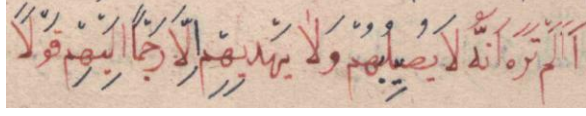 اَلَمْ تَرَهُ اَنَّهُ لَا يُصِيبُهُمْ وَلَا يَهْدِيهِمْ اِلَّا رَجْمًا اِلَيْهِمْ قَوْلًا